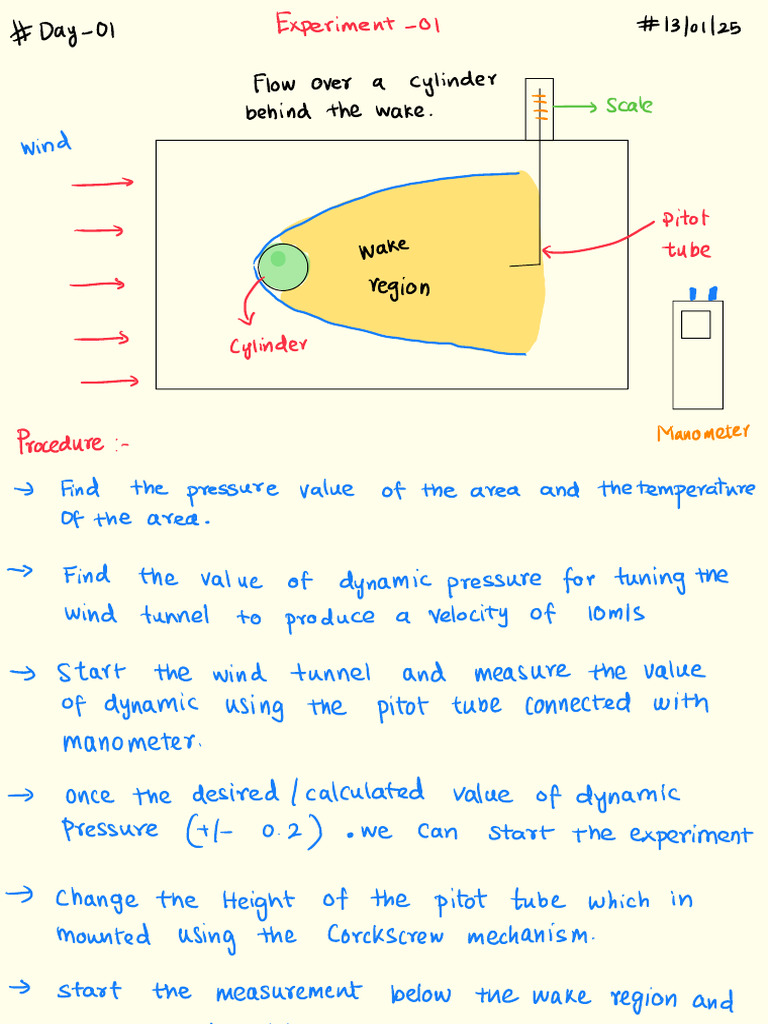 # Day-01
Experiment -01
# 13/01/25
Flow over a cylinder
behind the wake.
Scale
wind
Pitot
tube
wake
region
Cylinder
Manometer
Procedure :-
→ Find the pressure value of the area and the temperature
of the area.
→ Find the value of dynamic pressure for tuning the
wind tunnel to produce a velocity of 10m/s
→ Start the wind tunnel and measure the value
of dynamic using the pitot tube connected with
manometer.
→ once the desired/calculated value of dynamic
Pressure (+/- 0.2) .we can start the experiment
→ Change the Height of the pitot tube which in
mounted using the Corckscrew mechanism.
→ start the measurement below the wake region and